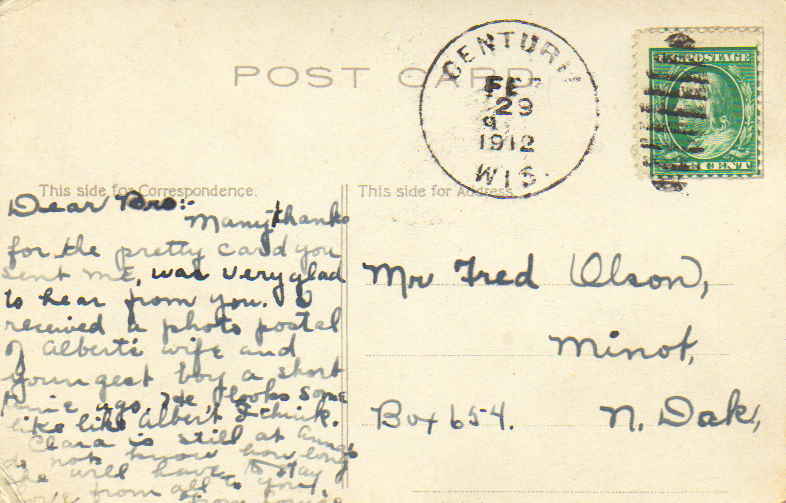 POST CARD
CENTURIA
FE
29
9
1912
WIS.
U.S. POSTAGE
1 CENT
This side for Correspondence.
This side for Address
Dear Bro:-
Many thanks
for the pretty card you
sent me, was very glad
to hear from you. I
received a photo postal
of Albert's wife and
youngest boy a short
time ago. He looks some
like like Albert, I think.
Clara is still at
do not know how long
she will have to stay
love from all to you,
from
Mr Fred Olson,
Minot,
Box 654. N. Dak,